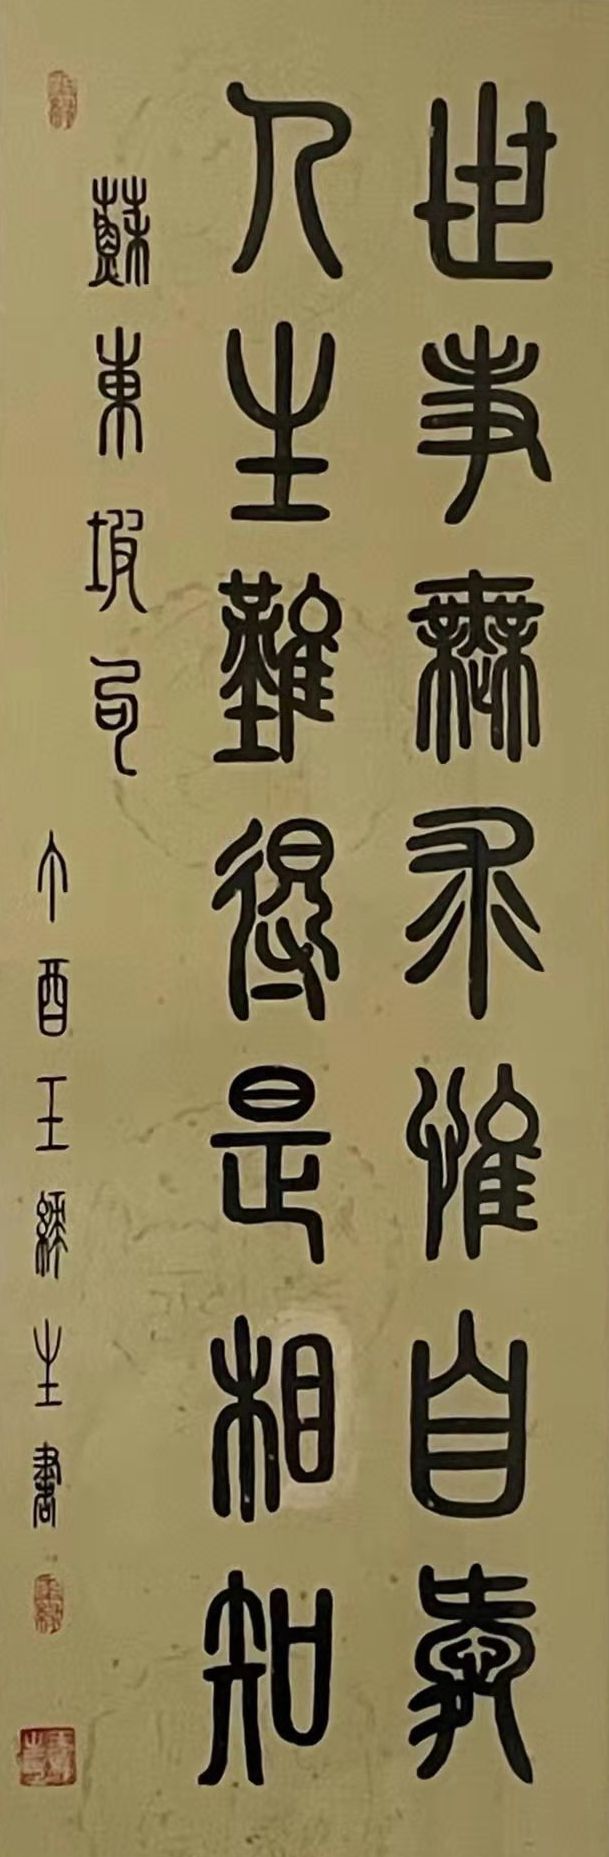 世事無求惟自愛
人生難得是相知
蘇東坡句
丁酉王生書